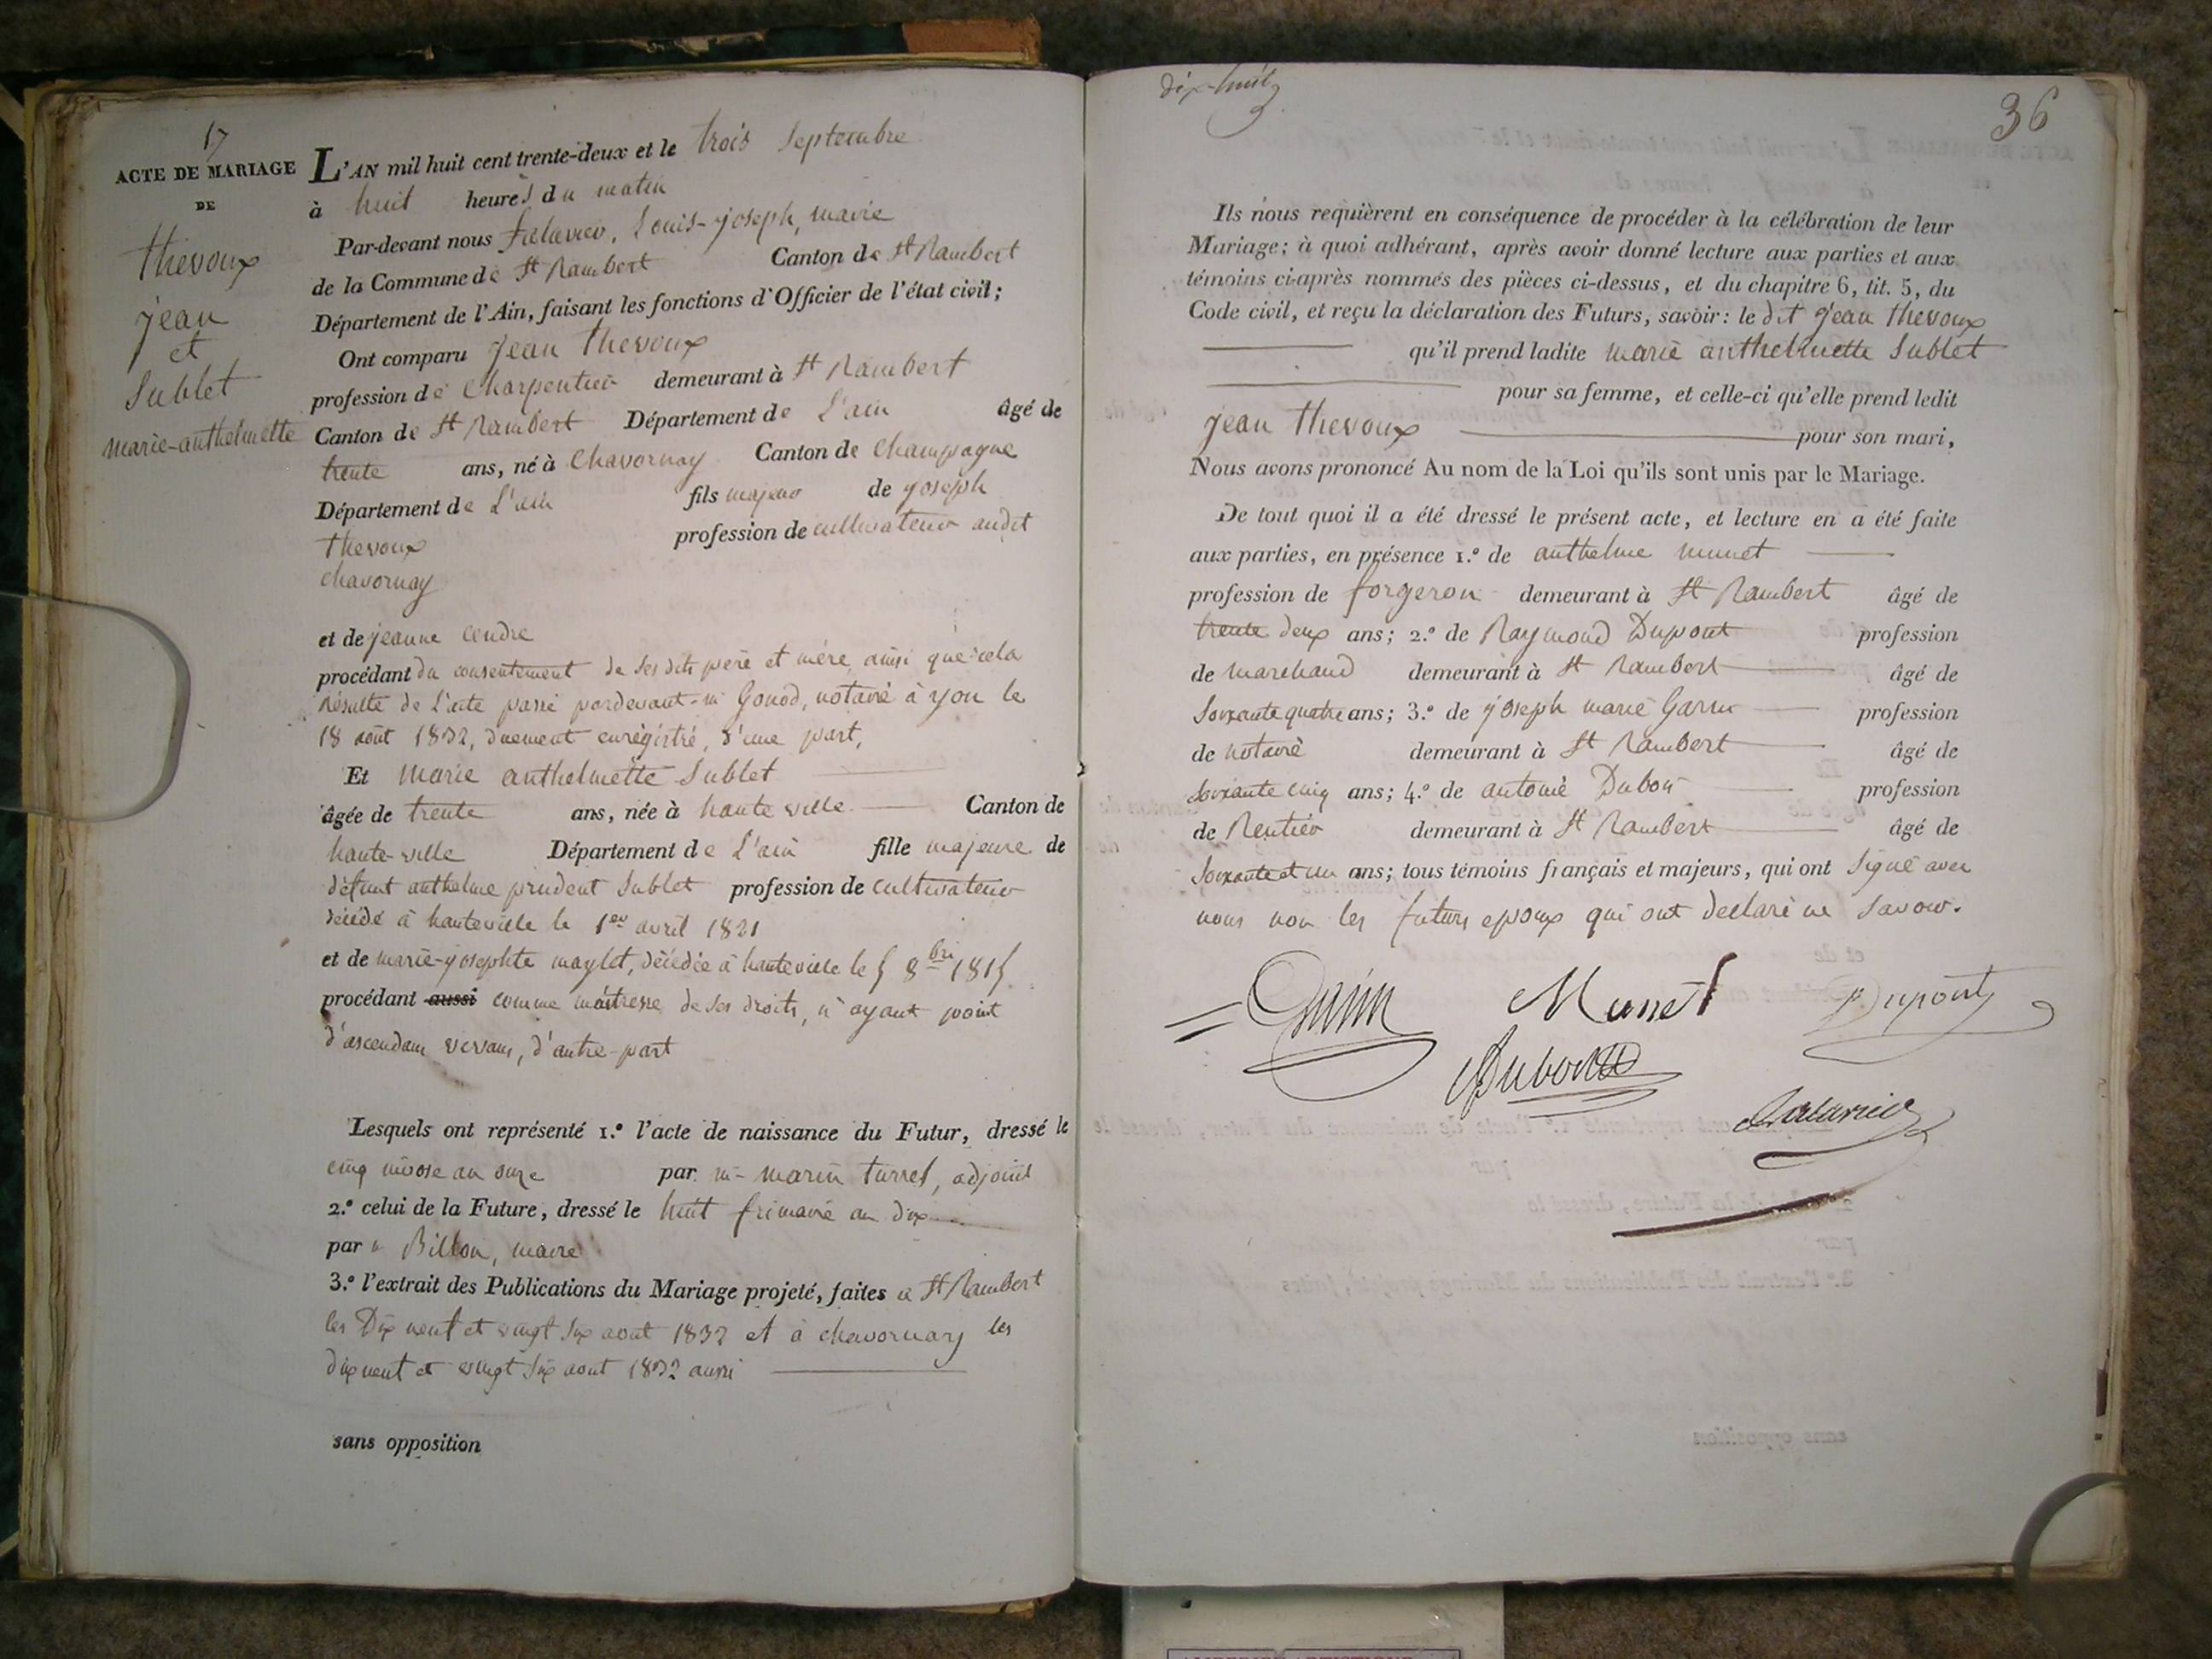 17
ACTE DE MARIAGE
DE
thevoux
jean
et
Sublet
marie-anthelmette
L'AN mil huit cent trente-deux et le trois Septembre
à huit heures du matin
Par-devant nous falavier, Louis-joseph, maire
de la Commune de St Rambert Canton de St Rambert
Département de l'Ain, faisant les fonctions d'Officier de l'état civil;
Ont comparu jean thevoux
profession de charpentier demeurant à St Rambert
Canton de St Rambert Département de L'ain âgé de
trente ans, né à chavornay Canton de champagne
Département de L'ain fils majeur de joseph
thevoux profession de cultivateur audit
chavornay
et de jeanne cendre
procédant du consentement de ses dits père et mère, ainsi que cela
résulte de L'acte passé pardevant me Gonod, notaire à yon le
18 août 1832, duement enrégistré, d'une part,
Et marie anthelmette Sublet
âgée de trente ans, née à haute ville Canton de
haute-ville Département de L'ain fille majeure de
défunt anthelme prudent Sublet profession de cultivateur
décédé à hauteville le 1er avril 1821
et de marie-josephte maylet, décédée à hauteville le 5 8bre 1815
procédant aussi comme maitresse de ses droits, n'ayant point
d'ascendans vivans, d'autre-part
Lesquels ont représenté 1.º l'acte de naissance du Futur, dressé le
cinq nivose an onze par me marin turrel, adjoint
2.º celui de la Future, dressé le huit frimaire an dix
par Billon, maire
3.º l'extrait des Publications du Mariage projeté, faites a St Rambert
les Dix neuf et vingt six aout 1832 et à chavornay les
dix neuf et vingt six aout 1832 aussi
sans opposition
dix-huit
36
Ils nous requièrent en conséquence de procéder à la célébration de leur
Mariage; à quoi adhérant, après avoir donné lecture aux parties et aux
témoins ci-après nommés des pièces ci-dessus, et du chapitre 6, tit. 5, du
Code civil, et reçu la déclaration des Futurs, savoir: le dit jean thevoux
qu'il prend ladite marie anthelmette Sublet
pour sa femme, et celle-ci qu'elle prend ledit
jean thevoux pour son mari,
Nous avons prononcé Au nom de la Loi qu'ils sont unis par le Mariage.
De tout quoi il a été dressé le présent acte, et lecture en a été faite
aux parties, en présence 1.º de anthelme munet
profession de forgeron demeurant à St Rambert âgé de
trente deux ans; 2.º de Raymond Dupont profession
de marchand demeurant à St Rambert âgé de
Soixante quatre ans; 3.º de joseph marie Garin profession
de notaire demeurant à St Rambert âgé de
Soixante cinq ans; 4.º de antoine Dubois profession
de Rentier demeurant à St Rambert âgé de
Soixante et un ans; tous témoins français et majeurs, qui ont signé avec
nous non les futurs epoux qui ont declaré ne savoir.
Garin Munet Dupont
Dubois
falavier